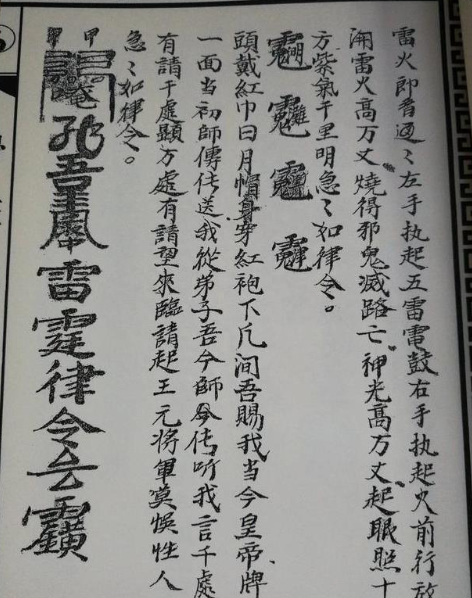 雷火即着适〻左手执起五雷電鼓右手执起火前行放
開雷火高万丈燒得邪鬼滅路亡神光高万丈起眼照十
方紫氣千里明急〻如律令。
頭戴紅巾日月帽身穿紅袍下凡间吾賜我当今皇帝牌
一面当初師傳传送我從弟子吾今師父传听我言千處
有請千處顯万處有請望來臨請起王元将軍莫悮性人
急〻如律令。
甲 甲
吾奉雷霆律令